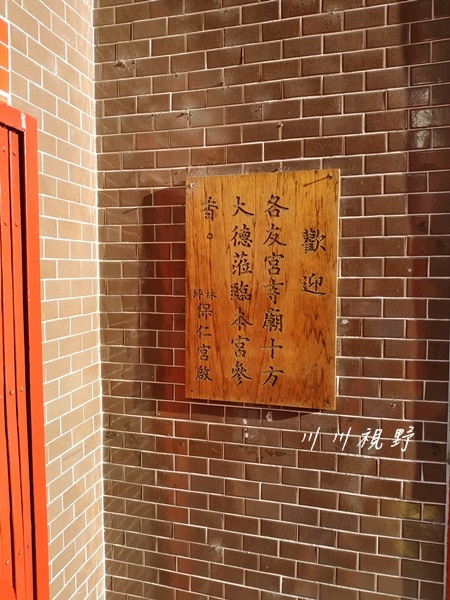 一
歡迎
各友宮寺廟十方
大德蒞臨本宮參
香。
坪林
保仁宮啟
川川視野